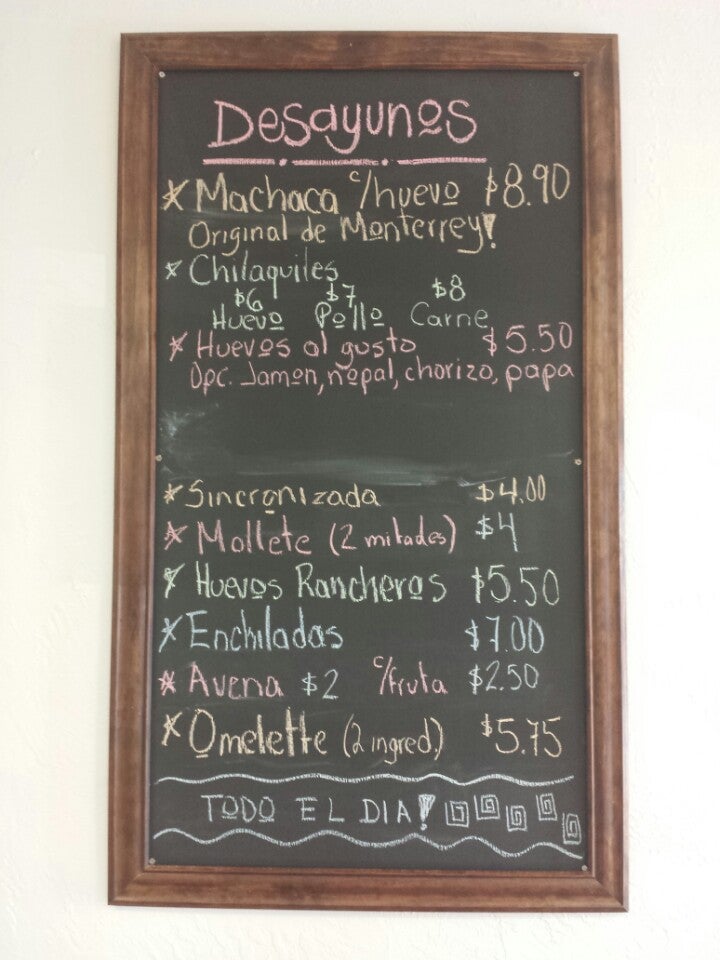 Desayunos
Machaca c/huevo $8.90
Original de Monterrey!
Chilaquiles
$6 $7 $8
Huevo Pollo Carne
Huevos al gusto $5.50
Opc. Jamon, nopal, chorizo, papa
Sincronizada $4.00
Mollete (2 mitades) $4
Huevos Rancheros $5.50
Enchiladas $7.00
Avena $2 c/fruta $2.50
Omelette (2 ingred.) $5.75
TODO EL DIA!